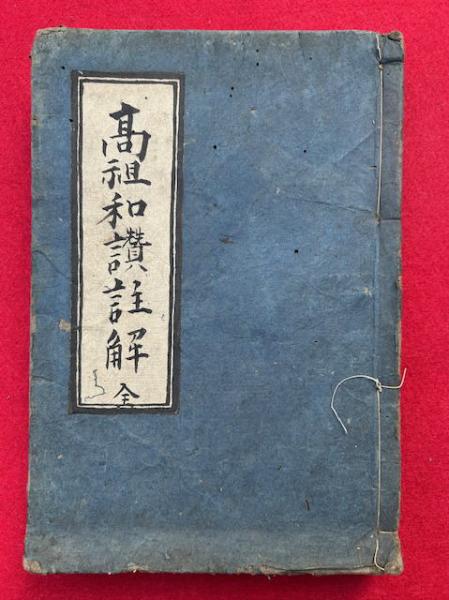 高祖和讃註解
全